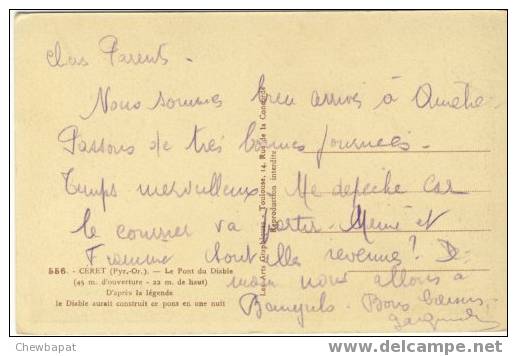 Chers Parents -
Nous sommes bien arrivés à
Passons de très bonnes journées -
Temps merveilleux. Me depeche car
le courrier va partir. Mémé et
sont elles revenues? De
main nous allons à
Banyuls - Bons baisers
556. - CÉRET (Pyr.-Or.). — Le Pont du Diable
(45 m. d'ouverture - 22 m. de haut)
D'après la légende
le Diable aurait construit ce pons en une nuit
Les Arts Graphiques - Toulouse, 14, Rue de la Concorde
Reproduction interdite
Chewbapat
France
delcampe.net